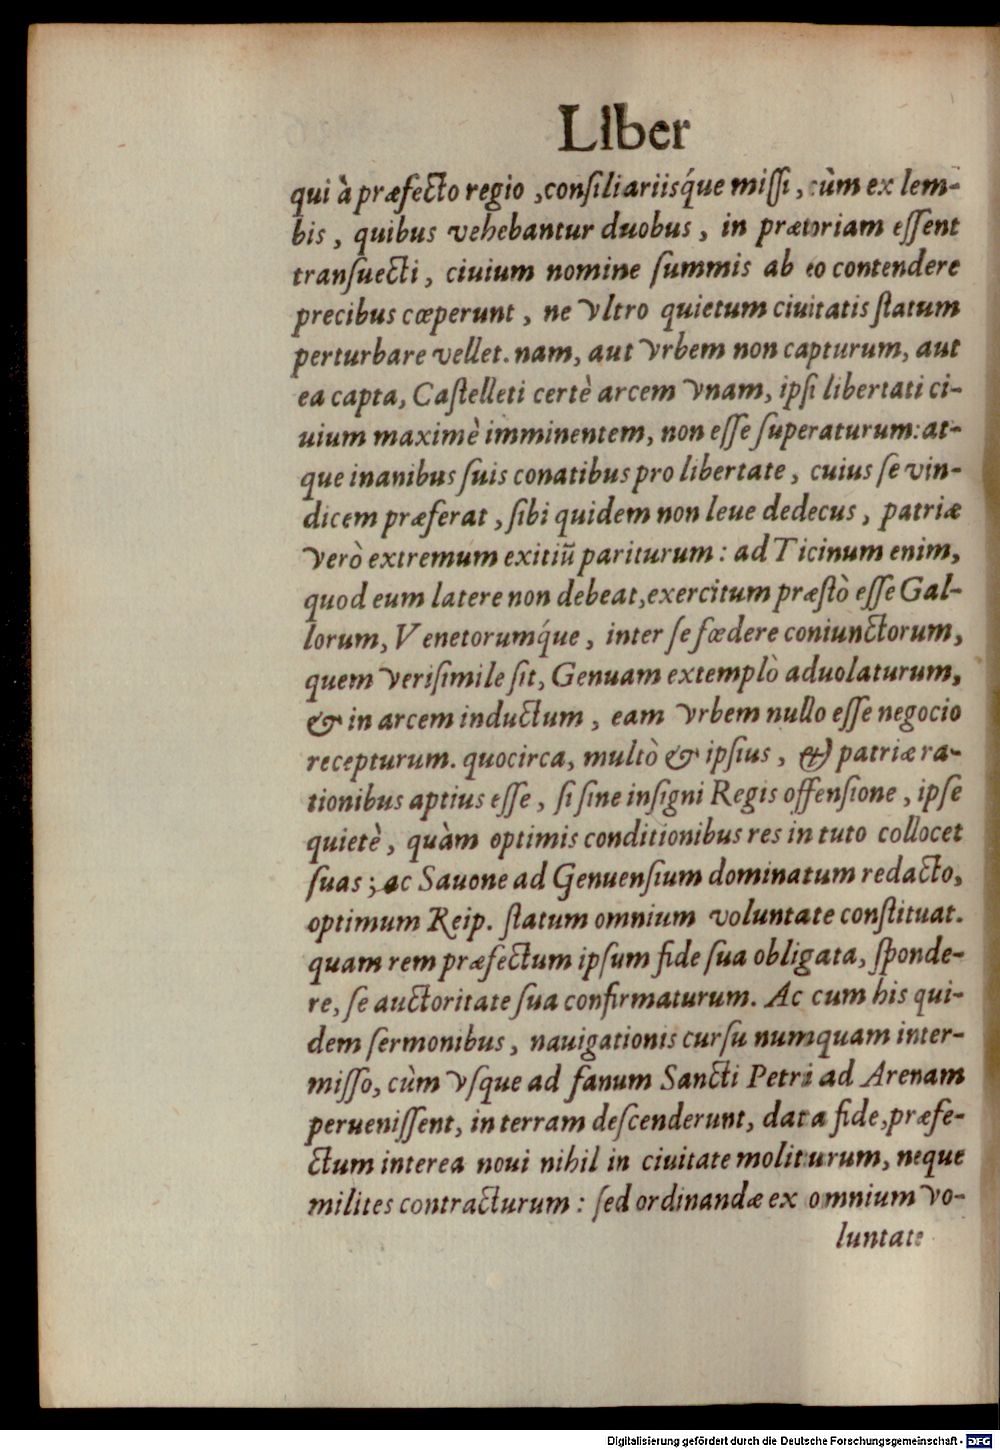 Liber
qui à præfecto regio, consiliariisq́ue missi, cùm ex lem-
bis, quibus vehebantur duobus, in prætoriam essent
transuecti, ciuium nomine summis ab eo contendere
precibus cœperunt, ne vltro quietum ciuitatis statum
perturbare vellet. nam, aut vrbem non capturum, aut
ea capta, Castelleti certè arcem vnam, ipsi libertati ci-
uium maximè imminentem, non esse superaturum: at-
que inanibus suis conatibus pro libertate, cuius se vin-
dicem præferat, sibi quidem non leue dedecus, patriæ
verò extremum exitiũ pariturum: ad Ticinum enim,
quod eum latere non debeat, exercitum præstò esse Gal-
lorum, Venetorumq́ue, inter se fœdere coniunctorum,
quem verisimile sit, Genuam extemplò aduolaturum,
& in arcem inductum, eam vrbem nullo esse negocio
recepturum. quocirca, multò & ipsius, & patriæ ra-
tionibus aptius esse, si sine insigni Regis offensione, ipse
quietè, quàm optimis conditionibus res in tuto collocet
suas; ac Sauone ad Genuensium dominatum redacto,
optimum Reip. statum omnium voluntate constituat.
quam rem præfectum ipsum fide sua obligata, sponde-
re, se auctoritate sua confirmaturum. Ac cum his qui-
dem sermonibus, nauigationis cursu numquam inter-
misso, cùm vsque ad fanum Sancti Petri ad Arenam
peruenissent, in terram descenderunt, data fide, præfe-
ctum interea noui nihil in ciuitate moliturum, neque
milites contracturum: sed ordinandæ ex omnium vo-
luntate
Digitalisierung gefördert durch die Deutsche Forschungsgemeinschaft - DFG